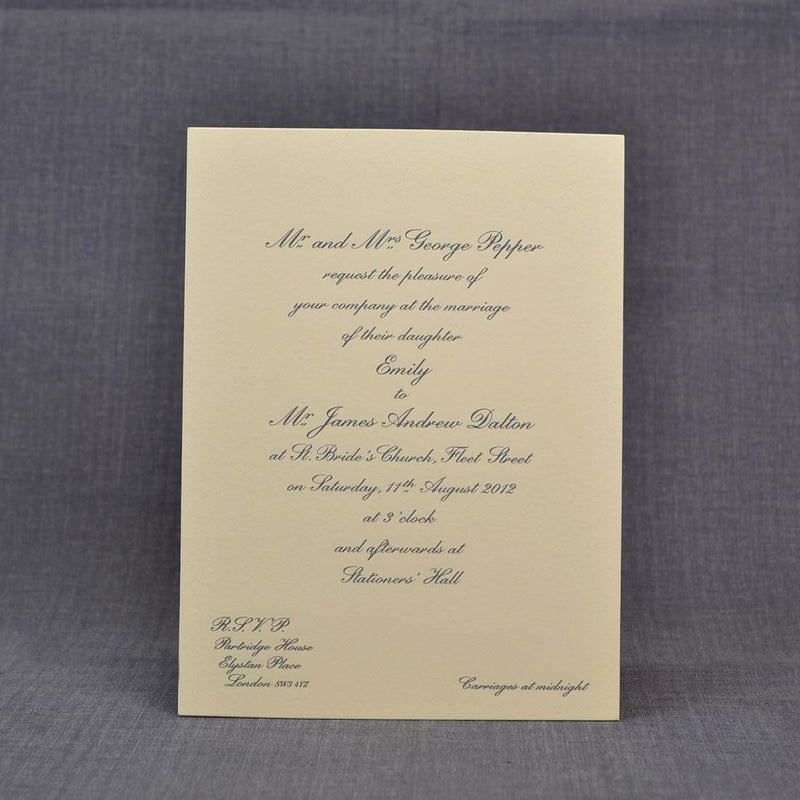 Mr and Mrs George Pepper
request the pleasure of
your company at the marriage
of their daughter
Emily
to
Mr James Andrew Dalton
at St. Bride's Church, Fleet Street
on Saturday, 11th August 2012
at 3 o'clock
and afterwards at
Stationers' Hall
R.S.V.P.
Partridge House
Elystan Place
London SW3 4YZ
Carriages at midnight